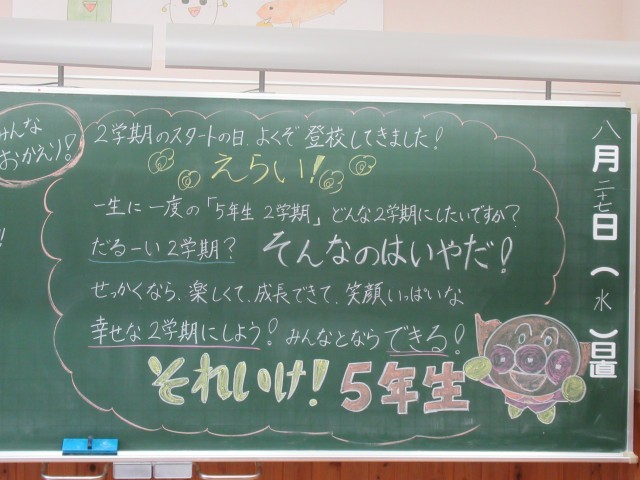 みんな
おかえり!
2学期のスタートの日、よくぞ登校してきました!
えらい!
一生に一度の「5年生 2学期」どんな2学期にしたいですか?
だるーい2学期? そんなのはいやだ!
せっかくなら、楽しくて、成長できて、笑顔いっぱいな
幸せな2学期にしよう! みんなとならできる!
それいけ! 5年生
八月二十七日(水)日直